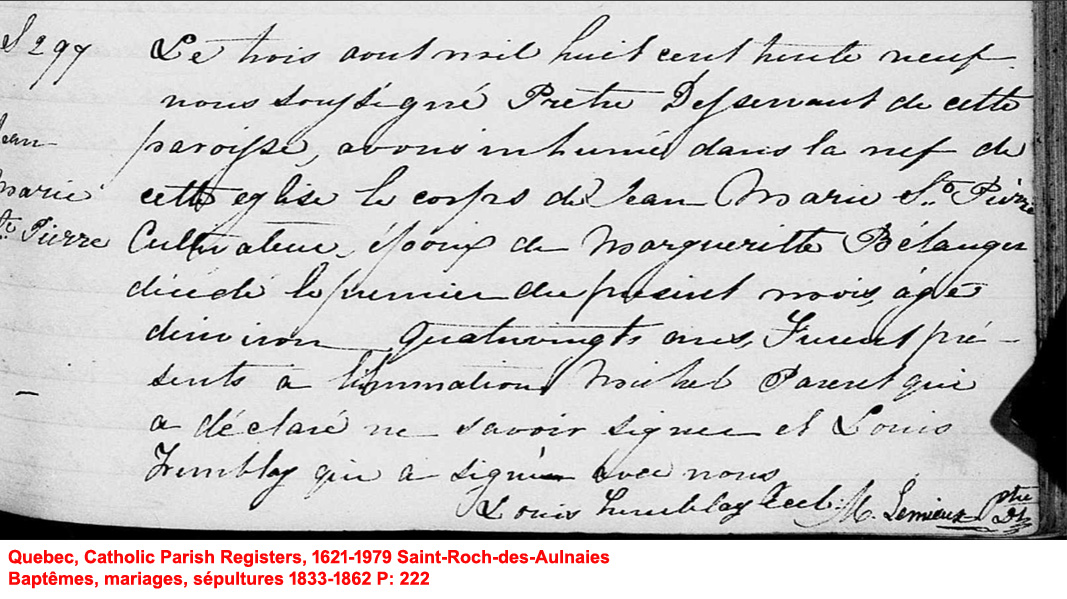 S 299
Jean
Marie
Ste. Pierre
Le trois aout mil huit cent trente neuf
nous soussigné Prêtre Desservant de cette
paroisse, avons inhumé dans la nef de
cette eglise le corps de Jean Marie St. Pierre
Cultivateur, époux de Margueritte Bélanger
décédé le premier du présent mois, agé
d'environ quatrevingts ans, Furent pré-
sents à l'inhumation Michel Parent qui
a déclaré ne savoir signer et Louis
Tremblay qui a signé avec nous
Louis Tremblay Eccl. M. Lemieux Ptre
Quebec, Catholic Parish Registers, 1621-1979 Saint-Roch-des-Aulnaies
Baptêmes, mariages, sépultures 1833-1862 P: 222